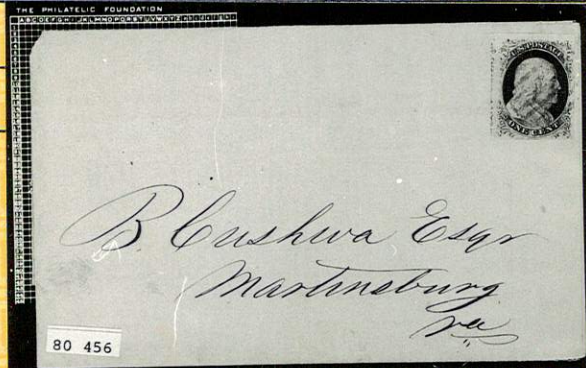 THE PHILATELIC FOUNDATION
U.S. POSTAGE
ONE CENT
B. Cushwa Esqr
Martinsburg
Va
80 456